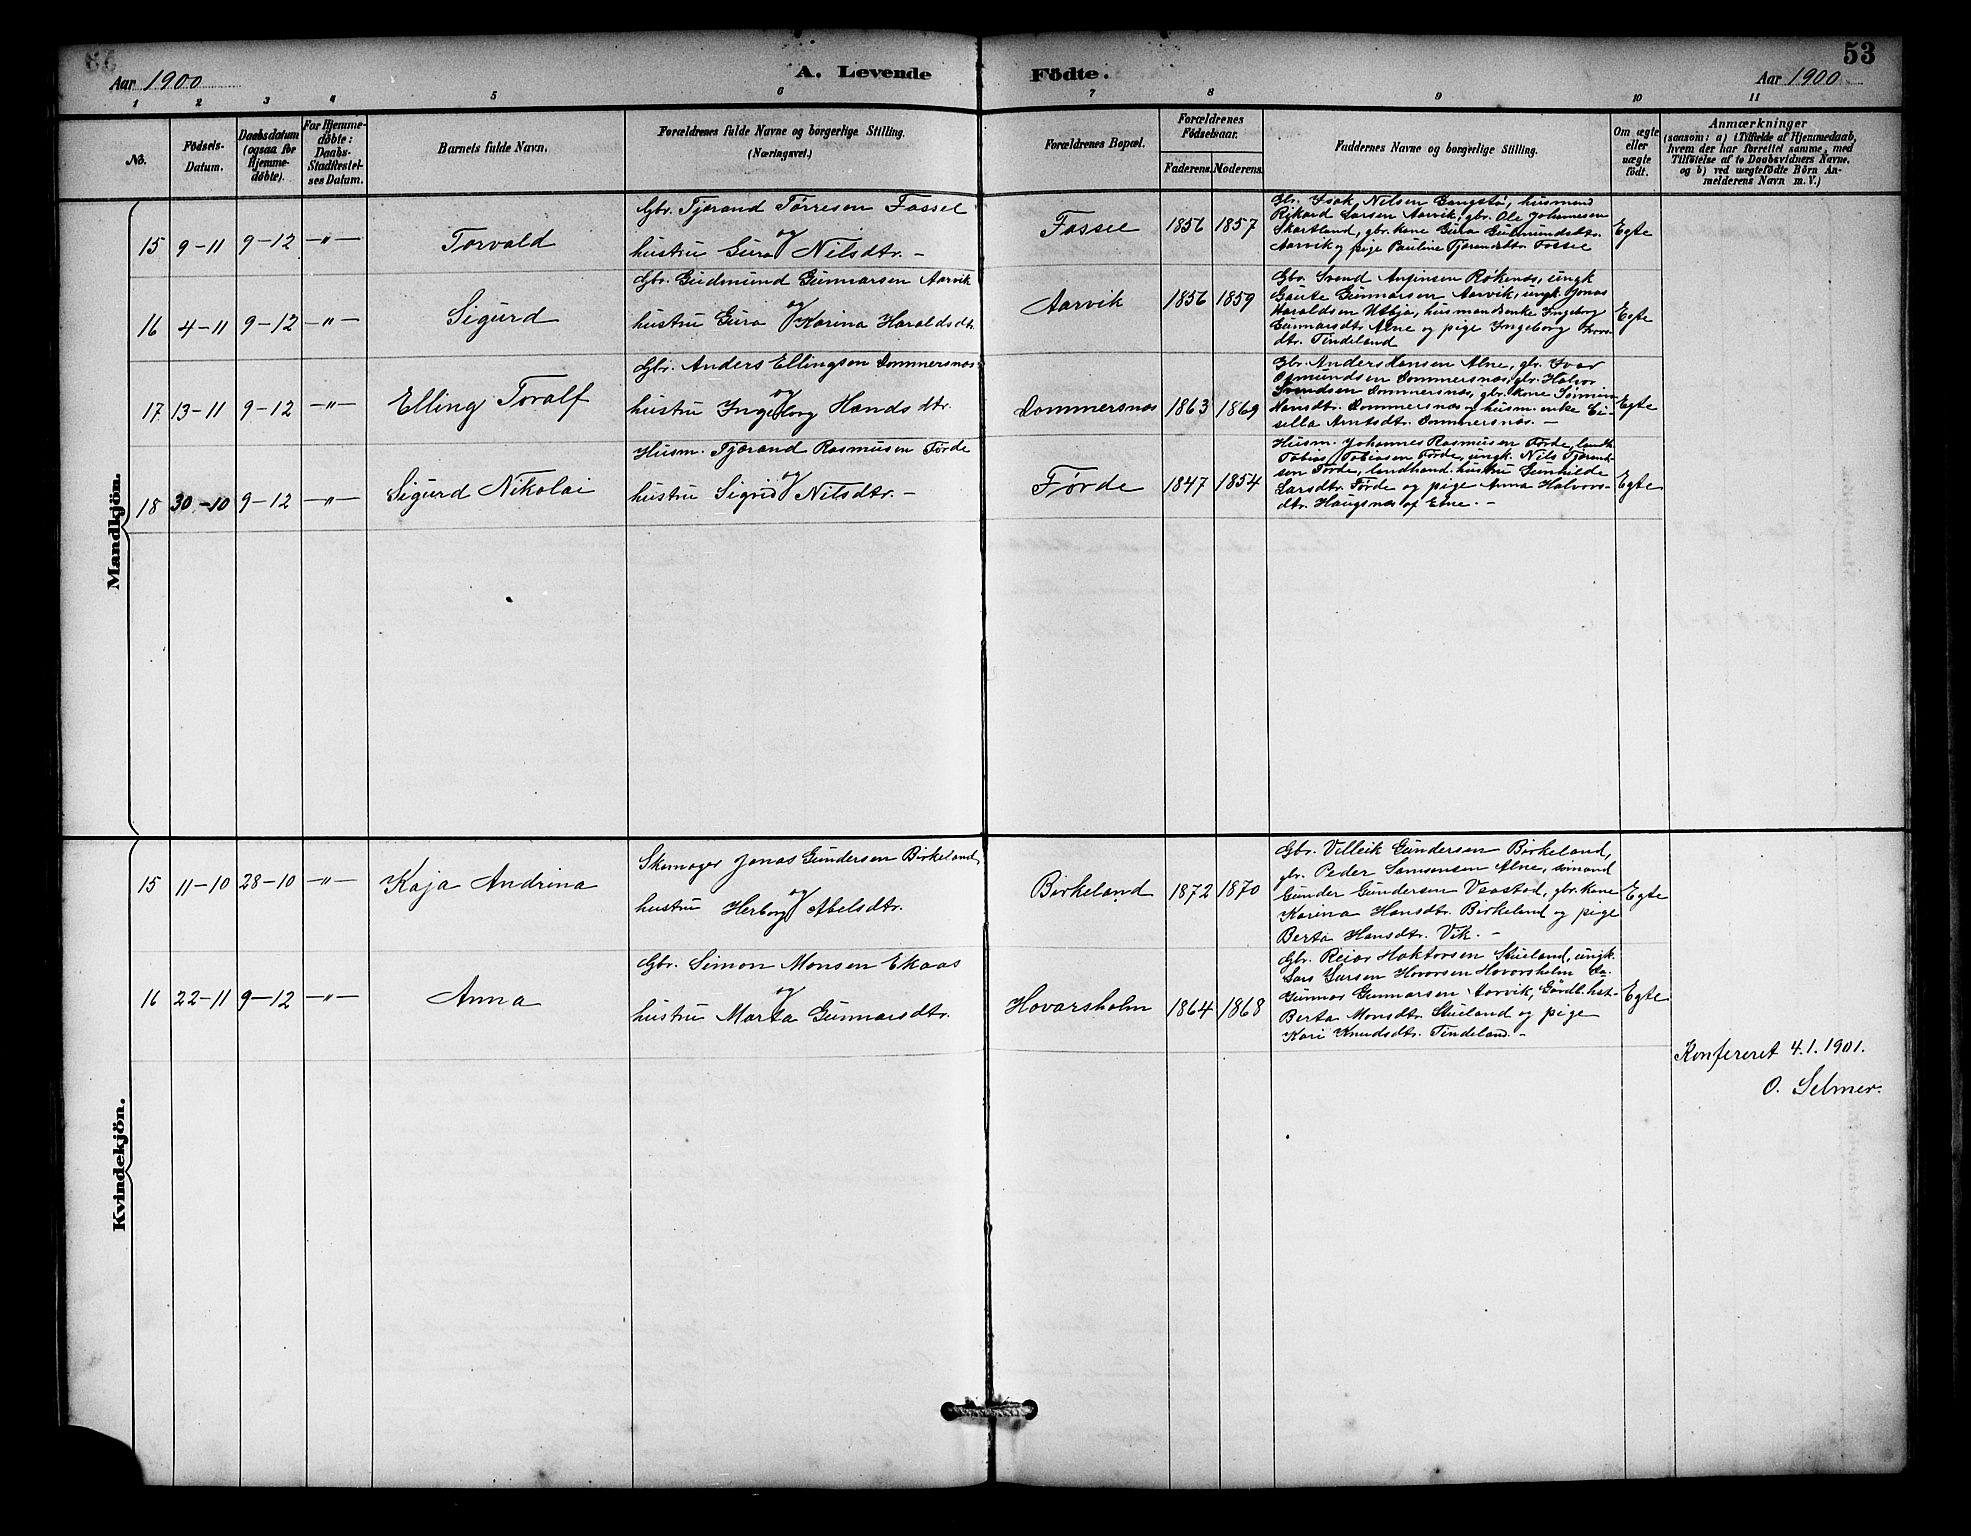 53
Aar 1900
A. Levende Födte.
Aar 1900
1 2 3 4 5 6 7 8 9 10 11
No.
Födsels-Datum.
Daabsdatum (ogsaa for Hjemme-døbte).
For Hjemme-døbte: Daabs-Stadfæstel-ses Datum.
Barnets fulde Navn.
Forældrenes fulde Navne og borgerlige Stilling. (Næringsvei.)
Forældrenes Bopæl.
Forældrenes Födselsaar.
Faderens. Moderens.
Faddernes Navne og borgerlige Stilling.
Om ægte eller uægte födt.
Anmærkninger
(saasom: a) i Tilfælde af Hjemmedaab, hvem der har forrettet samme, med Tilföielse af to Daabsvidners Navne, og b) ved uægtefödte Börn An-melderens Navn m. V.)
Mandkjön.
15 9-11 9-12 -"- Torvald
Gbr. Tjærand Tørresen Fosse
og
hustru Guro Nilsdtr. -
Fosse 1856 1857
Gbr. Isak Nilsen Gangstø, husmand
Rikard Larsen Aarvik, gbr. Ole Johannesen
Skartland, gbr. kone Guro Gudmundsdtr.
Aarvik og pige Pauline Tjærandsdtr. Fosse
Egte
16 4-11 9-12 -"- Sigurd
Gbr. Gudmund Gunnarsen Aarvik
og
hustru Guro Karina Haraldsdtr.
Aarvik 1856 1859
Gbr. Svend Røkenæs, ungk.
Gaute Gunnarsen Aarvik, ungk. Jonas
Haraldsen Utbjø, husmandsenke Ingeborg
Gunnarsdtr. Alne og pige Ingeborg
dtr. Tindeland
Egte
17. 13-11 9-12 -"- Elling Toralf
Gbr. Anders Ellingsen Dommersnæs
og
hustru Ingeborg Hansdtr.
Dommersnæs 1863 1869
Gbr. Anders Hansen Alne, gbr. Ivar
Osmundsen Dommersnæs, gbr. Halvor
Svendsen Dommersnæs, gbr. kone
Hansdtr. Dommersnæs og husm. enke Ci-
sella Arntsdtr. Dommersnæs. -
Egte
18 30-10 9-12 -"- Sigurd Nikolai
Husm. Tjærand Rasmusen Førde
og
hustru Sigrid Nilsdtr. -
Førde 1847 1854
Husm. Johannes Rasmusen Førde, landh.
Tobias Tobiasen Førde, ungk. Nils Tjærand-
sen Førde, landhand. hustru Gunhilde
Larsdtr. Førde og pige Anna Halvors-
dtr. Haugsnæs af Etne. -
Egte
Kvindekjön.
15 11-10 28-10 -"- Kaja Andrina
Skomager Jonas Gundersen Birkeland,
og
hustru Herborg Abelsdtr.
Birkeland 1872 1870
Gbr. Villeik Gundersen Birkeland,
gbr. Peder Samsonsen Alne, sømand
Gunder Gundersen Vaastad, gbr. kone
Karina Hansdtr. Birkeland og pige
Berta Hansdtr. Vik. -
Egte
16 22-11 9-12 -"- Anna
Gbr. Simon Monsen Ekaas
og
hustru Marta Gunnarsdtr.
Hovarsholm 1864 1868
Gbr. Reiar Haktorsen Stueland, ungk.
Lars Larsen Hovarsholm
Gunnar Gunnarsen Aarvik,
Berta Monsdtr. Stueland og pige
Kari Knudsdtr. Tindeland. -
Egte
Konfereret 4.1.1901.
O. Selmer.